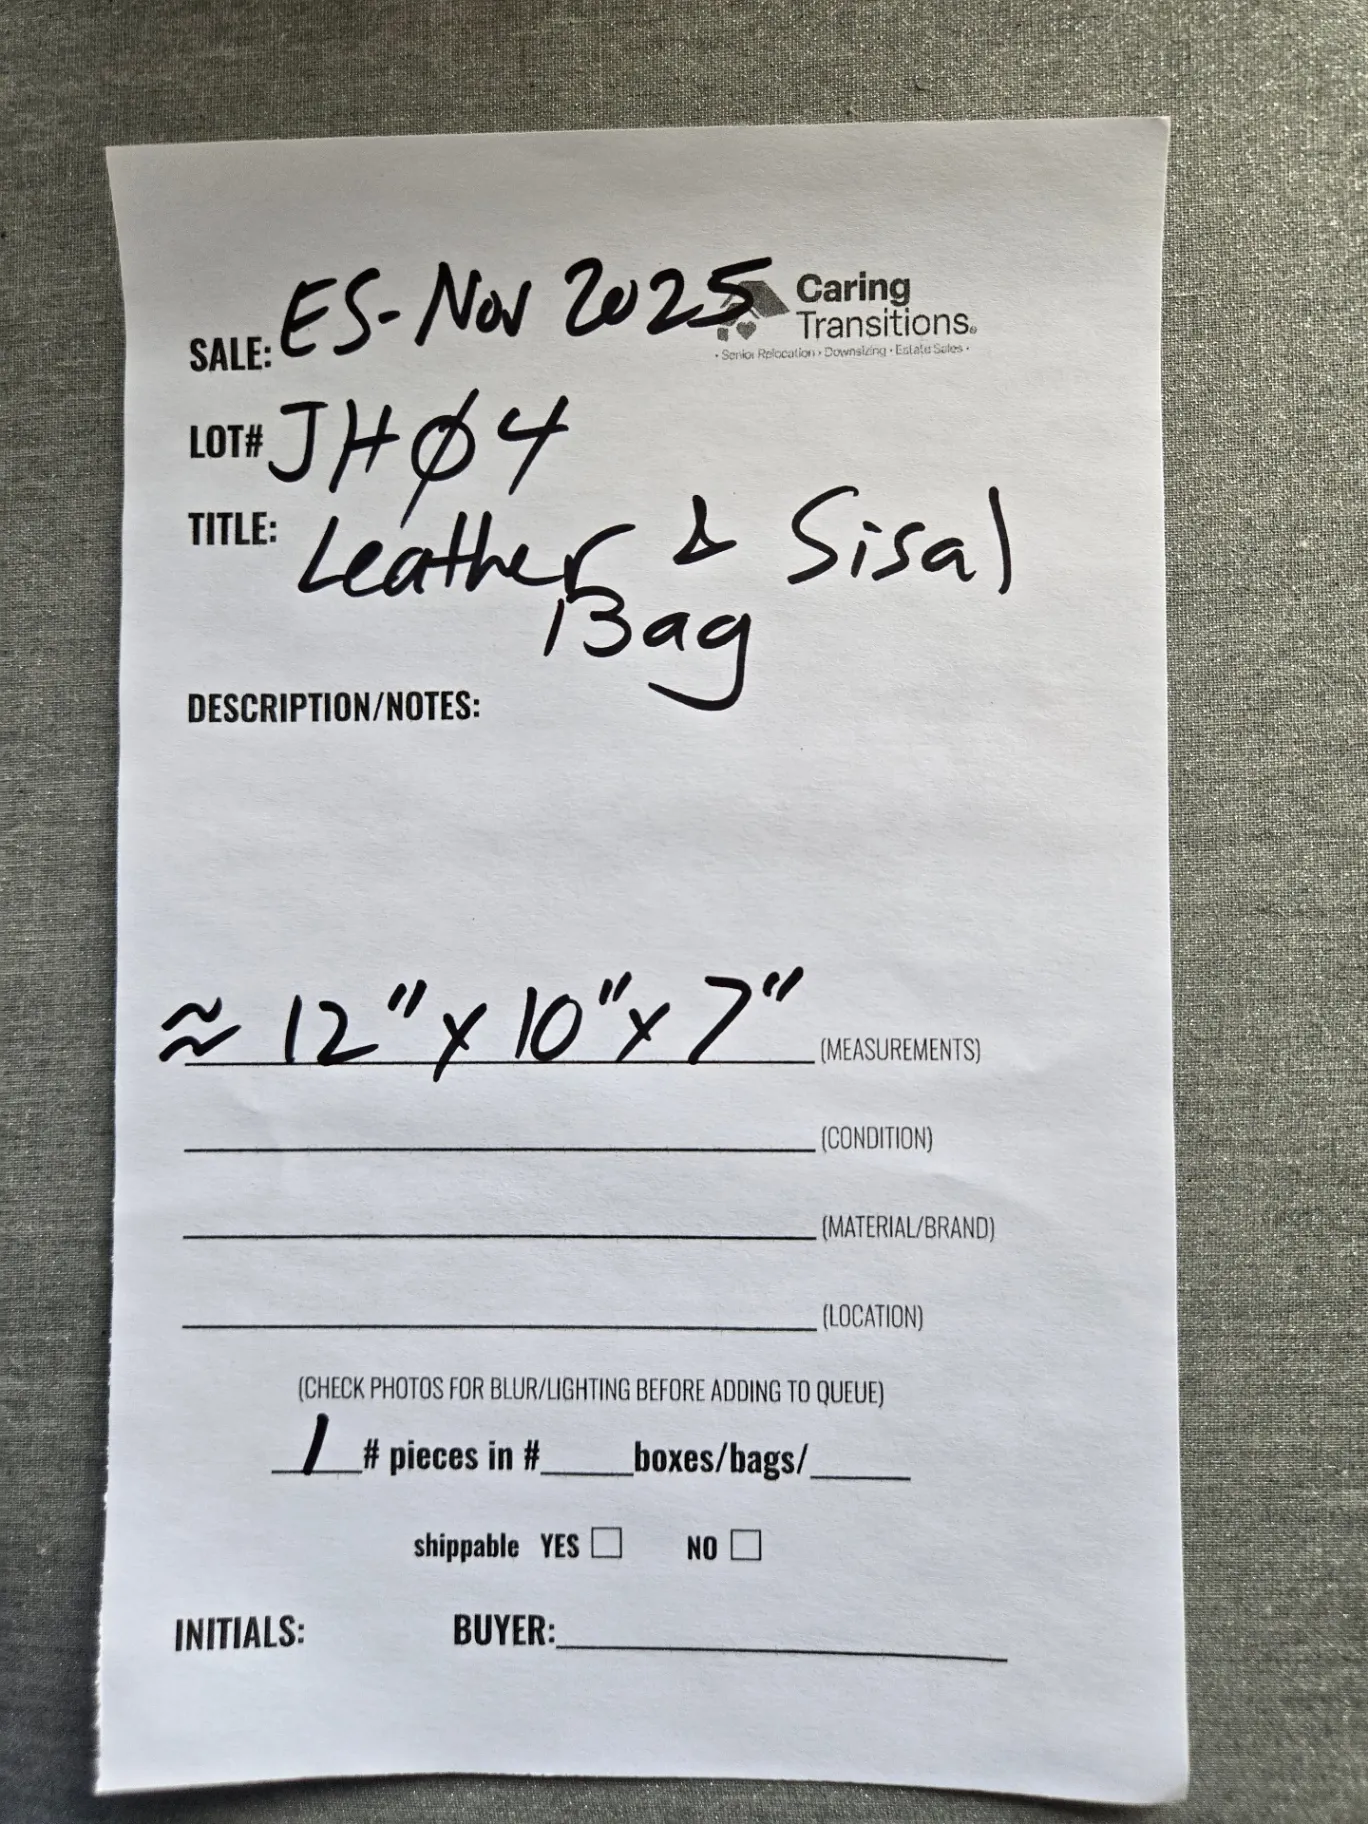 SALE: ES-Nov 2025
Caring
Transitions®
• Senior Relocation • Downsizing • Estate Sales •
LOT# JHØ4
TITLE: Leather & Sisal
Bag
DESCRIPTION/NOTES:
≈ 12" x 10" x 7" (MEASUREMENTS)
(CONDITION)
(MATERIAL/BRAND)
(LOCATION)
(CHECK PHOTOS FOR BLUR/LIGHTING BEFORE ADDING TO QUEUE)
1 # pieces in #_____boxes/bags/_____
shippable YES ☐ NO ☐
INITIALS: BUYER: